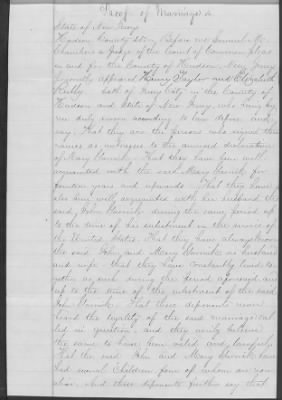 Proof of Marriage &c
State of New Jersey
Hudson County ss. Before me Samuel M.
Chambers a Judge of the Court of Common Pleas
in and for the County of Hudson, New Jersey
personally appeared Henry Taylor and Elizabeth
both of Jersey City in the County of
Hudson and State of New Jersey, who being by
me duly sworn according to law depose and
say. That they are the persons who signed their
names as witnesses to the annexed declaration
of Mary That they have been well
acquainted with the said Mary for
fourteen years and upwards. That they have
also been well acquainted with her husband the
said John during the same period up
to the time of his enlistment in the service of
the United States. That they have always known
the said John and Mary as husband
and wife that they have constantly lived to-
gether as such during the period aforesaid
up to the time of the enlistment of the said
John That these deponents never
heard the legality of the said marriage cal
led in question, and they verily believe
the same to have been valid and lawful.
That the said John and Mary have
had several Children, four of whom are now
alive. And these deponents further say that